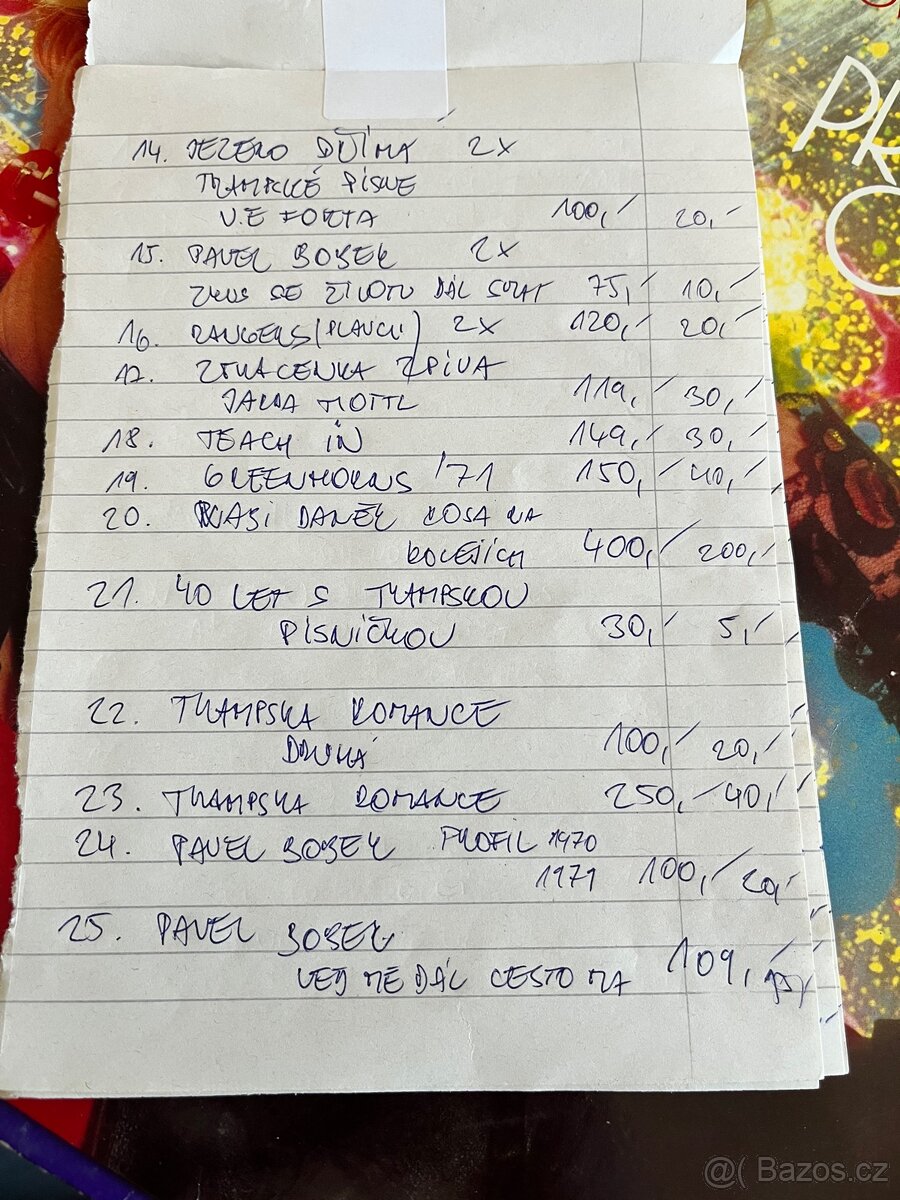 14. JEZERO DŘÍMÁ 2X
TRAMPSKÉ PÍSNĚ
V.E FORTA 100,- 20,-
15. PAVEL BOBEK 2X
ZKUS SE ŽIVOTU DÁL SMÁT 75,- 10,-
16. RANGERS (PLAVCI) 2X 120,- 20,-
17. ZTRACENKA ZPÍVÁ
JARKA MOTTL 119,- 30,-
18. TEACH IN 149,- 30,-
19. GREENHORNS '71 150,- 40,-
20. DANĚK ROSA NA
KOLEJÍCH 400,- 200,-
21. 40 LET S TRAMPSKOU
PÍSNIČKOU 30,- 5,-
22. TRAMPSKA ROMANCE
DRUHÁ 100,- 20,-
23. TRAMPSKA ROMANCE 250,- 40,-
24. PAVEL BOBEK PROFIL 1970
1979 100,- 20,-
25. PAVEL BOBEK
VEĎ MĚ DÁL CESTO MÁ 109,-
@( Bazos.cz